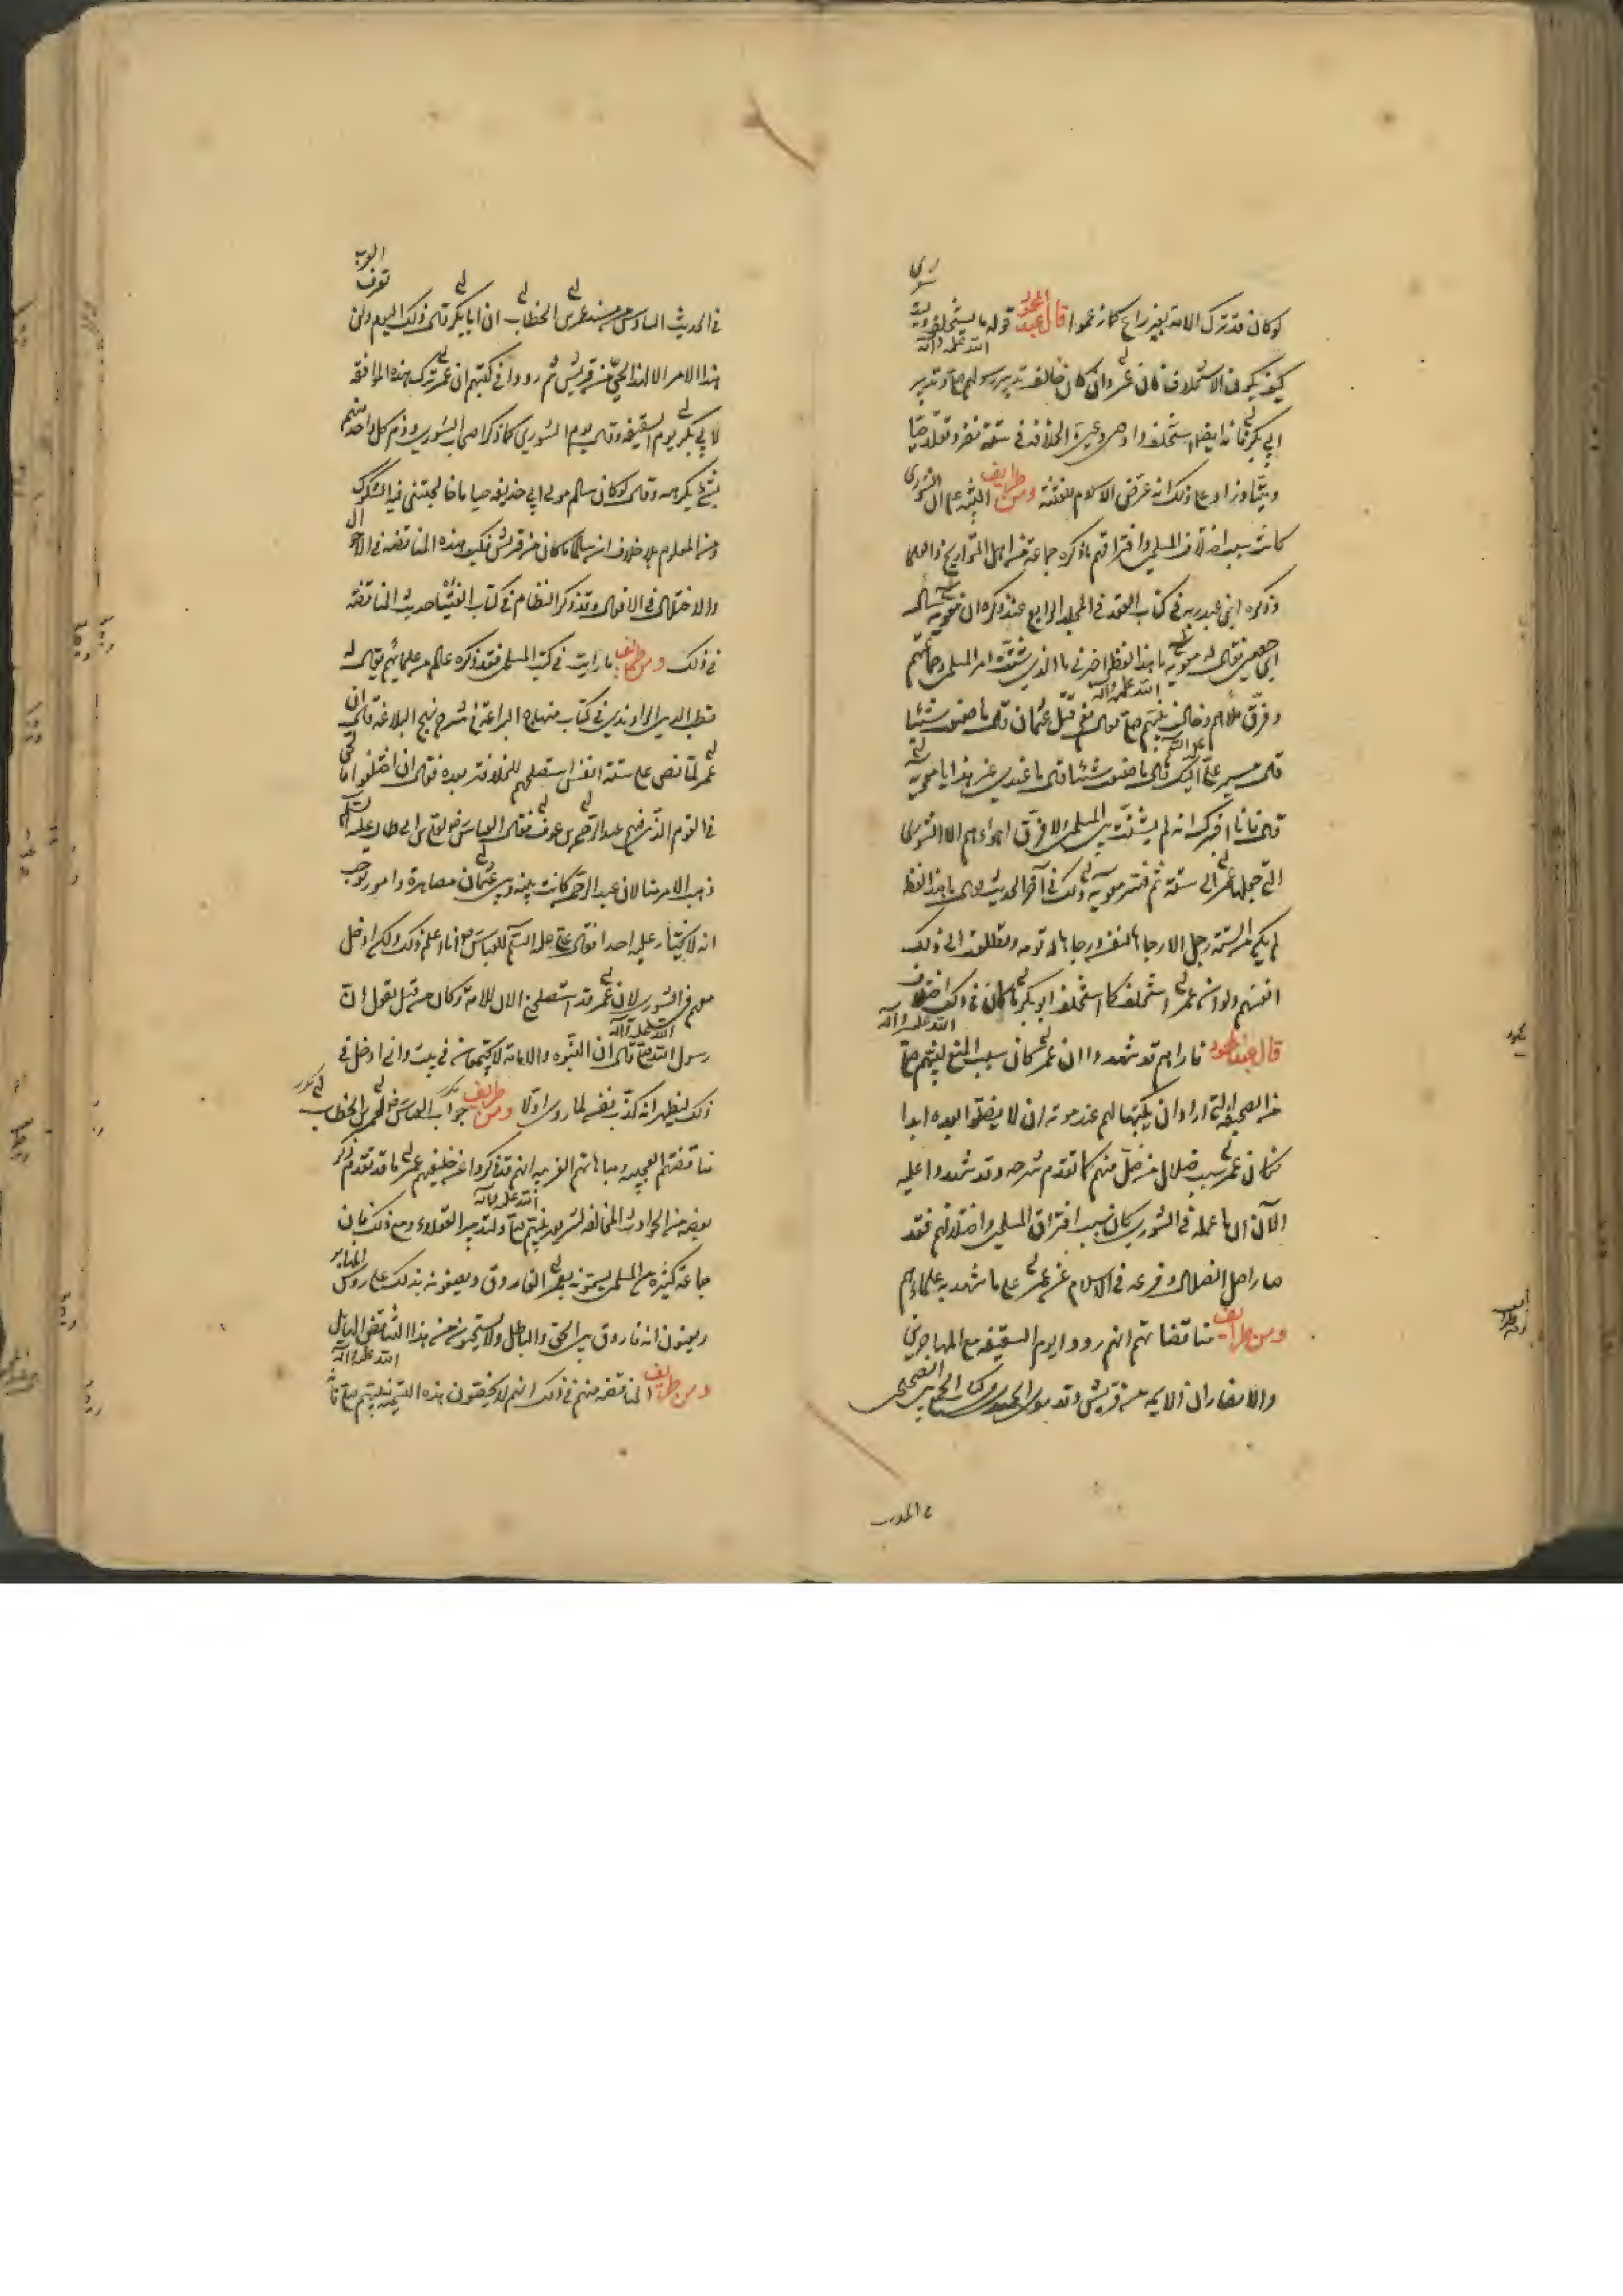 لو كان قد ترك الامة بغير راع كما زعموا قال عبد المحمود قوله ما يستخلف وليت شعرى
كيف يكون الاستخلاف فان عمر وان كان خالف تدبير رسولهم صلى الله عليه وآله وتدبير
ابي بكر فانه ايضا استخلف واوصى وعين الخلافة في ستة نفر وتقلدها حيا
وميتا وزاد على ذلك انه عرض الاسلام للفتنة ومن طرايف البينة على ان الشورى
كانت سبب اختلاف المسلمين وافتراقهم ما ذكره جماعة من اهل التواريخ والعلماء
وذكره ابن عبد ربه في كتاب العقد في المجلد الرابع عند ذكره ان معوية سال
ابن حصين فقال له معوية ما هذا لفظه اخبرني ما الذي شتت امر المسلمين وجماعتهم
وفرق ملأهم وخالف بينهم قال نعم قتل عثمان قال ما صنعت شيئا
قال مسير علي عليه السلم اليك قال ما صنعت شيئا قال ما عندي غير هذا يا معوية
قال فانا اخبرك انه لم يشتت بين المسلمين ولا فرق اهواءهم الا الشورى
التي جعلها عمر الى ستة ثم فسر معوية ذلك في آخر الحديث فقال ما هذا لفظه
لم يكن من الستة رجل الا رجاها لنفسه ورجاها له قومه وتطلعت الى ذلك
انفسهم ولو ان عمر استخلف كما استخلف ابو بكر ما كان في ذلك اختلاف
قال عبد المحمود فاراهم قد شهدوا ان عمر كان سبب المنع لنبيهم صلى الله عليه وآله
من الصحيفة التي اراد ان يكتبها لهم عند موته ان لا يضلوا بعده ابدا
فكان عمر سبب ضلال من ضل منهم كما تقدم شرحه وقد شهدوا عليه
الآن ان ما عمله في الشورى كان سبب افتراق المسلمين واختلافهم فقد
صار اصل الضلال وفرعه في الاسلام من عمر على ما شهد به علماءهم
ومن طرايف مناقضاتهم انهم رووا يوم السقيفة مع المهاجرين
والانصار ان الائمة من قريش وقد روى الحميدي في كتاب الجمع بين الصحيحين
في الحديث السادس من مسند عمر بن الخطاب ان ابا بكر قال ذلك اليوم ولن تعرف العرب
هذا الامر الا لهذا الحي من قريش ثم رووا في كتبهم ان عمر ترك هذه الموافقة
لابي بكر يوم السقيفة وقال يوم الشورى لما ذكر اصحاب الشورى وذم كل واحد منهم
بشئ يكرهه وقال لو كان سالم مولى ابي حذيفة حيا ما خالجتني فيه الشكوك
ومن المعلوم بلا خلاف ان سالما ما كان من قريش فكيف هذه المناقضة في الاحوال
والاختلال في الاقوال وقد ذكر النظام في كتاب الفتيا حديث المناقضة
في ذلك ومن طرايف ما رايت في كتب المسلمين فقد ذكره عالم من علمائهم يقال له
قطب الدين الراوندي في كتاب منهاج البراعة في شرح نهج البلاغة قال ان
عمر لما نص على ستة انفس استصلحهم للخلافة بعده فقال ان اختلفوا فالحق
في القوم الذين فيهم عبد الرحمن بن عوف فقال العباس لعلي بن ابي طالب عليه السلم
ذهب الامر منا لان عبد الرحمن كانت بينه وبين عثمان مصاهرة وامور توجب
انه لا يختار عليه احدا فقال علي عليه السلم للعباس انا اعلم ذلك ولكن ادخل
معهم في الشورى لان عمر قد استصلحني الآن للامة وكان من قبل يقول ان
رسول الله صلى الله عليه وآله قال ان النبوة والامامة لا يجتمعان في بيت واني ادخل في
ذلك ليظهر انه كذب نفسه لما روى اولا ومن طرايف جواب العباس لعمر بن الخطاب
مناقضتهم العجيبة ومباهاتهم الغريبة انهم قد ذكروا عن خليفتهم عمر ما قد تقدم ذكر
بعضه من الحوادث المخالفة لشريعة نبيهم صلى الله عليه وآله ولتدبير العقلاء ومع ذلك فان
جماعة كثيرة من المسلمين يسمونه بعمر الفاروق ويصفونه بذلك على رؤس المنابر
ويعنون انه فاروق بين الحق والباطل ولا يستحيون من هذا التناقض الهايل
ومن طرايف المناقضة منهم في ذلك انهم لا يحققون هذه التسمية لنبيهم صلى الله عليه وآله